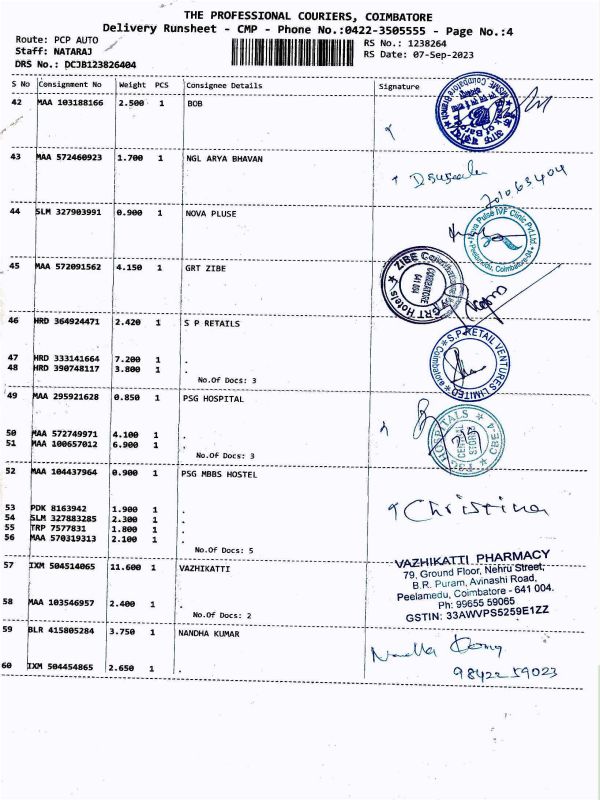 THE PROFESSIONAL COURIERS, COIMBATORE
Delivery Runsheet - CMP - Phone No.:0422-3505555 - Page No.:4
Route: PCP AUTO
RS No.: 1238264
Staff: NATARAJ
RS Date: 07-Sep-2023
DRS No.: DCJB123826404
S No Consignment No Weight PCS Consignee Details Signature
42 MAA 103188166 2.500 1 BOB
43 MAA 572460923 1.700 1 NGL ARYA BHAVAN
7010653404
44 SLM 327903991 0.900 1 NOVA PLUSE
Nova Pulse IVF Clinic Pvt.Ltd
Peelamedu, Coimbatore-04
45 MAA 572091562 4.150 1 GRT ZIBE
ZIBE Coimbatore By GRT Hotels
COIMBATORE
641 004
46 HRD 364924471 2.420 1 S P RETAILS
S.P. RETAIL VENTURES LIMITED
Coimbatore
47 HRD 333141664 7.200 1 .
48 HRD 390748117 3.800 1 .
No.Of Docs: 3
49 MAA 295921628 0.850 1 PSG HOSPITAL
PSG HOSPITALS
CENTRAL
STORES
CBE-4
50 MAA 572749971 4.100 1 .
51 MAA 100657012 6.900 1 .
No.Of Docs: 3
52 MAA 104437964 0.900 1 PSG MBBS HOSTEL
Christina
53 PDK 8163942 1.900 1 .
54 SLM 327883285 2.300 1 .
55 TRP 7577831 1.800 1 .
56 MAA 570319313 2.100 1 .
No.Of Docs: 5
57 IXM 504514065 11.600 1 VAZHIKATTI
VAZHIKATTI PHARMACY
79, Ground Floor, Nehru Street,
B.R. Puram, Avinashi Road,
Peelamedu, Coimbatore - 641 004.
Ph: 99655 59065
GSTIN: 33AWVPS5259E1ZZ
58 MAA 103546957 2.400 1 .
No.Of Docs: 2
59 BLR 415805284 3.750 1 NANDHA KUMAR
Nandha Kumar
98422 59023
60 IXM 504454865 2.650 1 .